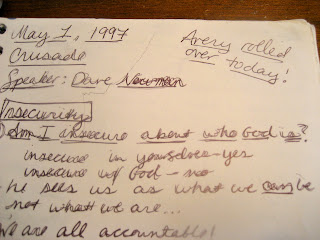 May 7, 1997
Avery rolled
over today!
Crusade
Speaker: Dave Newman
Insecurity
Am I insecure about who God is?
insecure in yourselve-yes
insecure w/ God - no
- he sees us as what we can be
not what we are...
We are all accountable!